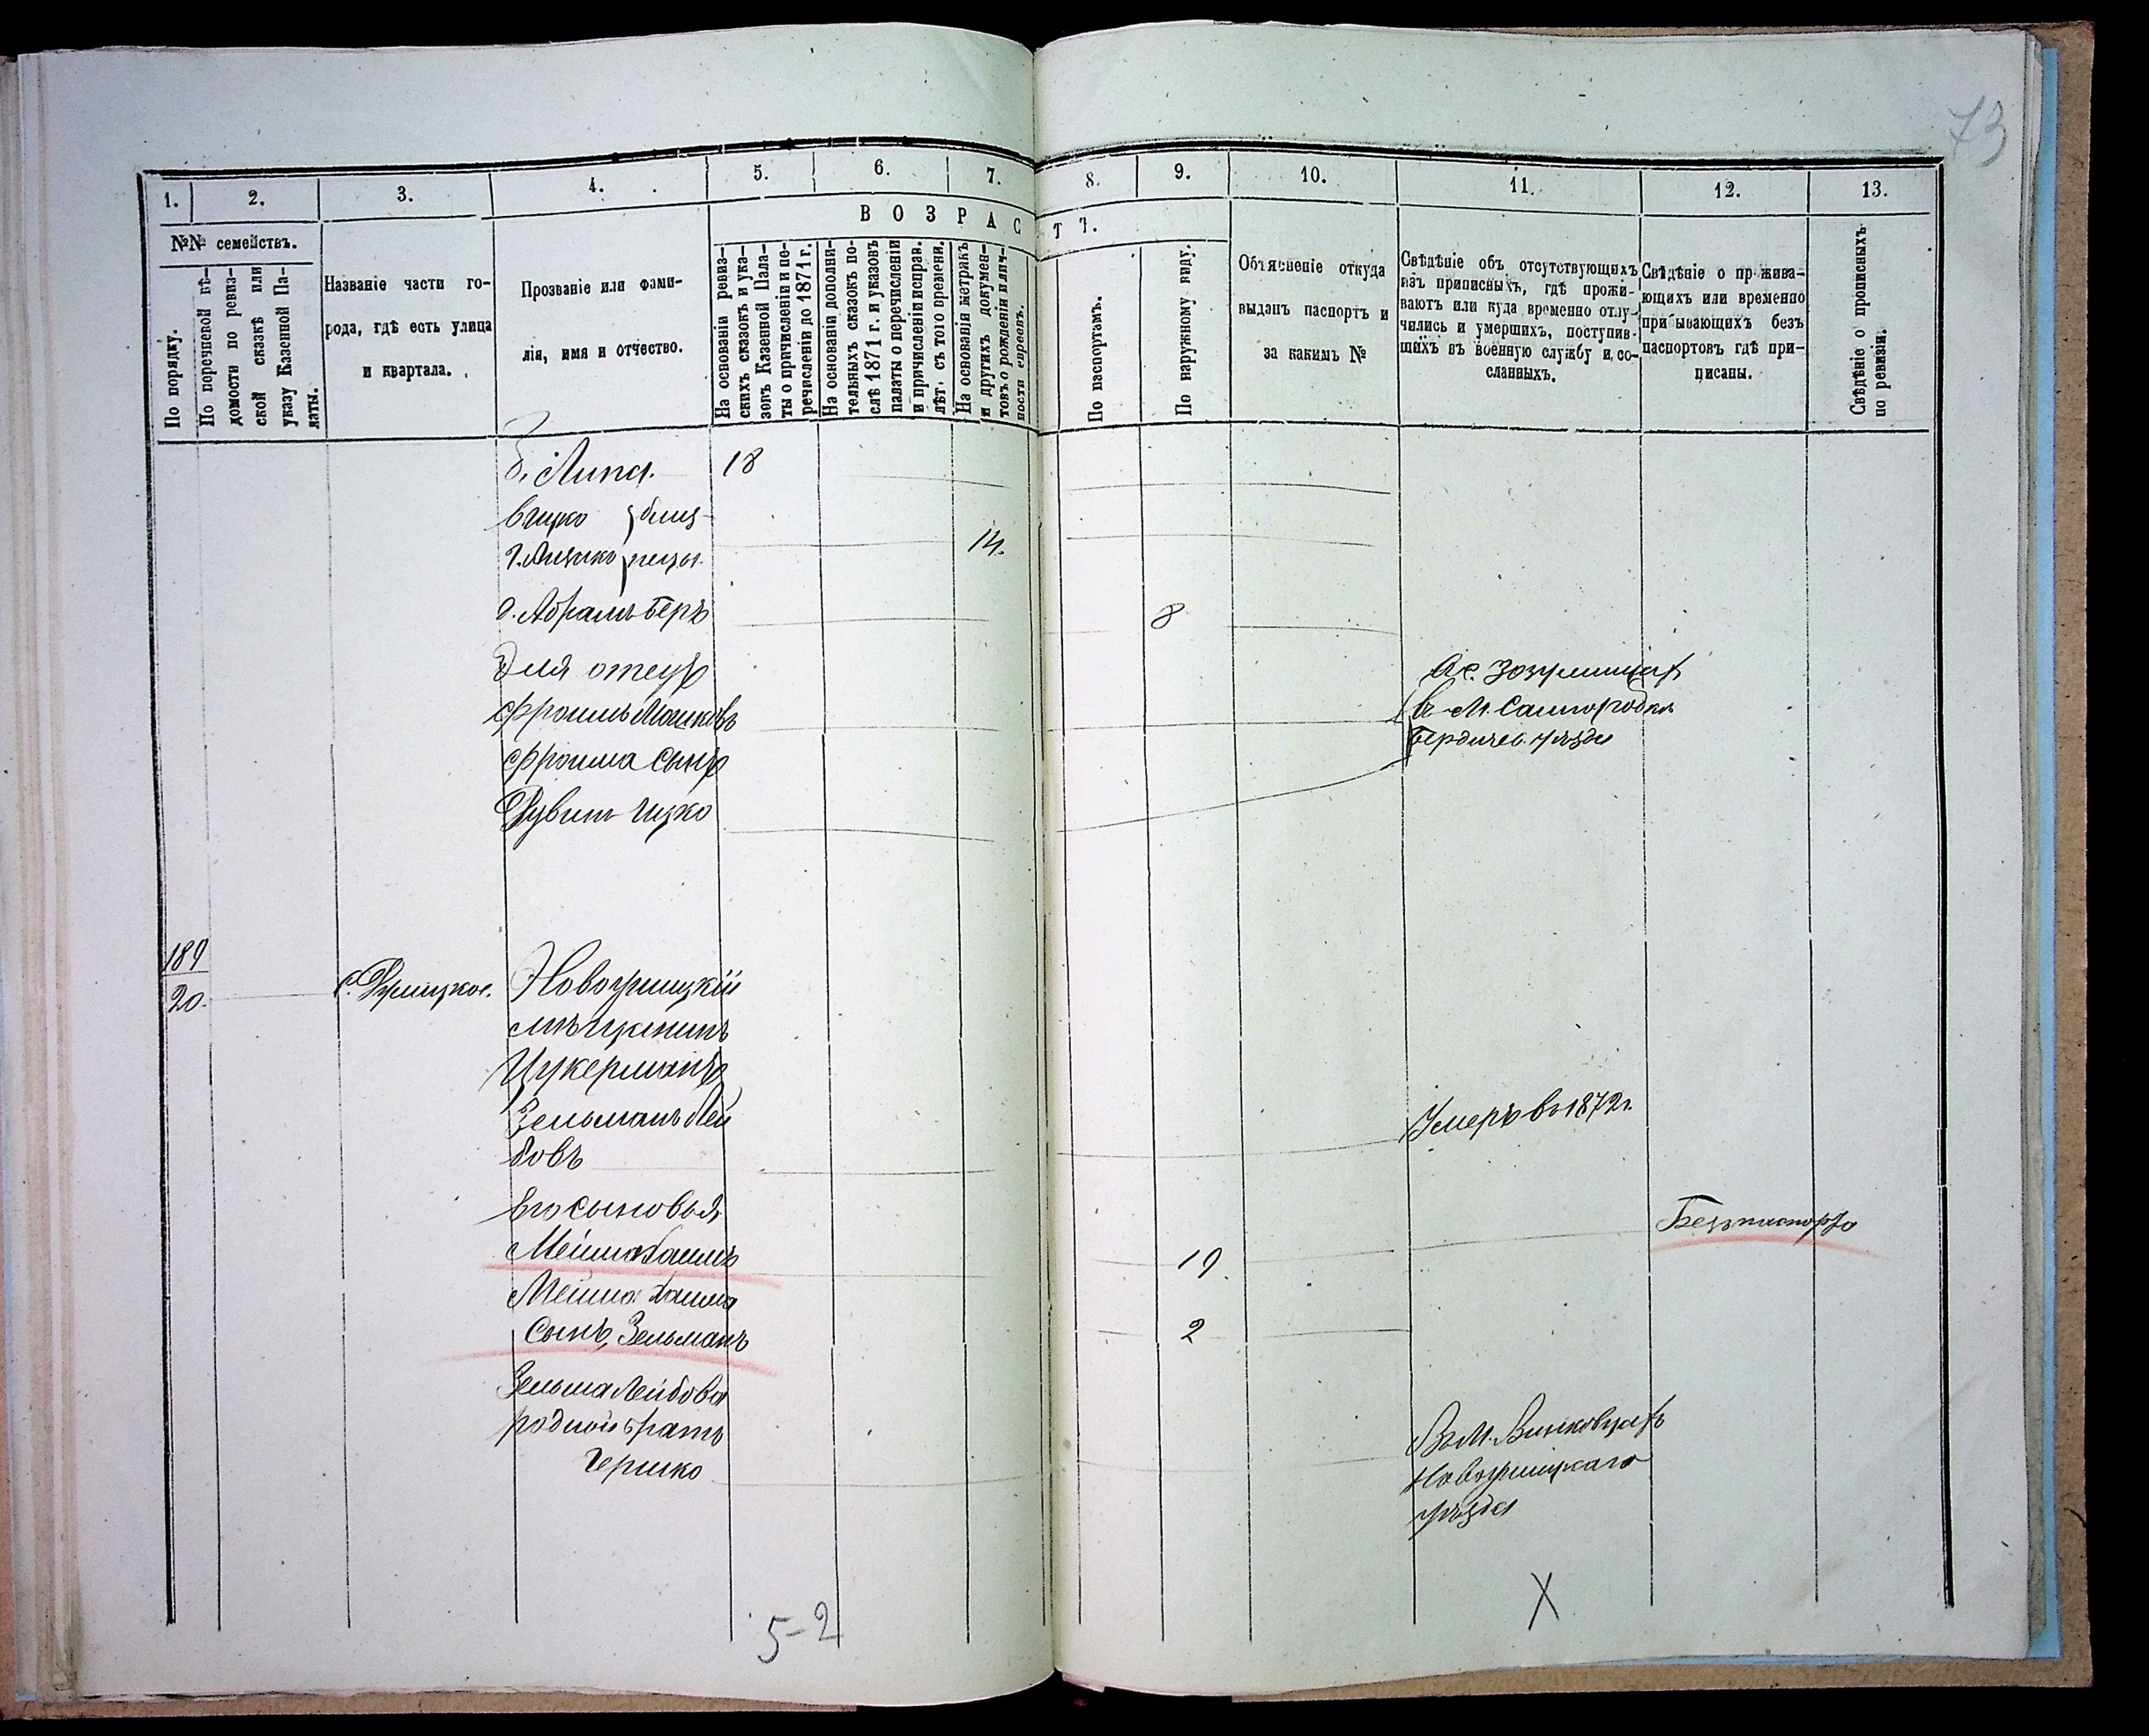 73
1. 2. 3. 4. 5. 6. 7. 8. 9. 10. 11. 12. 13.
№№ семействъ.
По порядку.
По перечневой вѣ-
домости по ревиз-
ской сказкѣ или
указу Казенной Па-
латы.
Названіе части го-
рода, гдѣ есть улица
и квартала.
Прозваніе или фами-
лія, имя и отчество.
ВОЗРАСТЪ.
На основаніи ревиз-
скихъ сказокъ и ука-
зовъ Казенной Пала-
ты о причисленіи и пе-
речисленіи до 1871 г.
На основаніи дополни-
тельныхъ сказокъ по-
слѣ 1871 г. и указовъ
палаты о перечисленіи
и причисленіи исправ.
лѣт. съ того времени.
На основаніи метрикъ
и другихъ докумен-
товъ о рожденіи и лич-
ности евреевъ.
По паспортамъ.
По наружному виду.
Объясненіе откуда
выданъ паспортъ и
за какимъ №
Свѣдѣніе объ отсутствующихъ
изъ приписныхъ, гдѣ прожи-
ваютъ или куда временно отлу-
чились и умершихъ, поступив-
шихъ въ военную службу и со-
сланныхъ.
Свѣдѣніе о прожива-
ющихъ или временно
прибывающихъ безъ
паспортовъ гдѣ при-
писаны.
Свѣдѣніе о прописныхъ
по ревизіи.
б. Липа. 18
в Ицко близ-
г. Лейзко нецы. 14.
д. Абрамъ Беръ 8
Эля отецъ
Фроимъ Мошковъ
Фроима сынъ
Рувинъ Ицко
в м. Самгородкѣ
Бердичев. уѣзда
189
20. с. Дунаецкое. Новоушицкій
мѣщанинъ
Цукерманъ
Зельманъ Лей
бовъ Умеръ въ 1872 г.
Его сыновья
Мейша Хаимъ 19. Безъ паспорта
Мейша Хаима
сынъ, Зельманъ 2
Зельма Лейбова
родной братъ
Гершко
Въ м. Виньковцахъ
Новоушицкаго
уѣзда
5-2
X